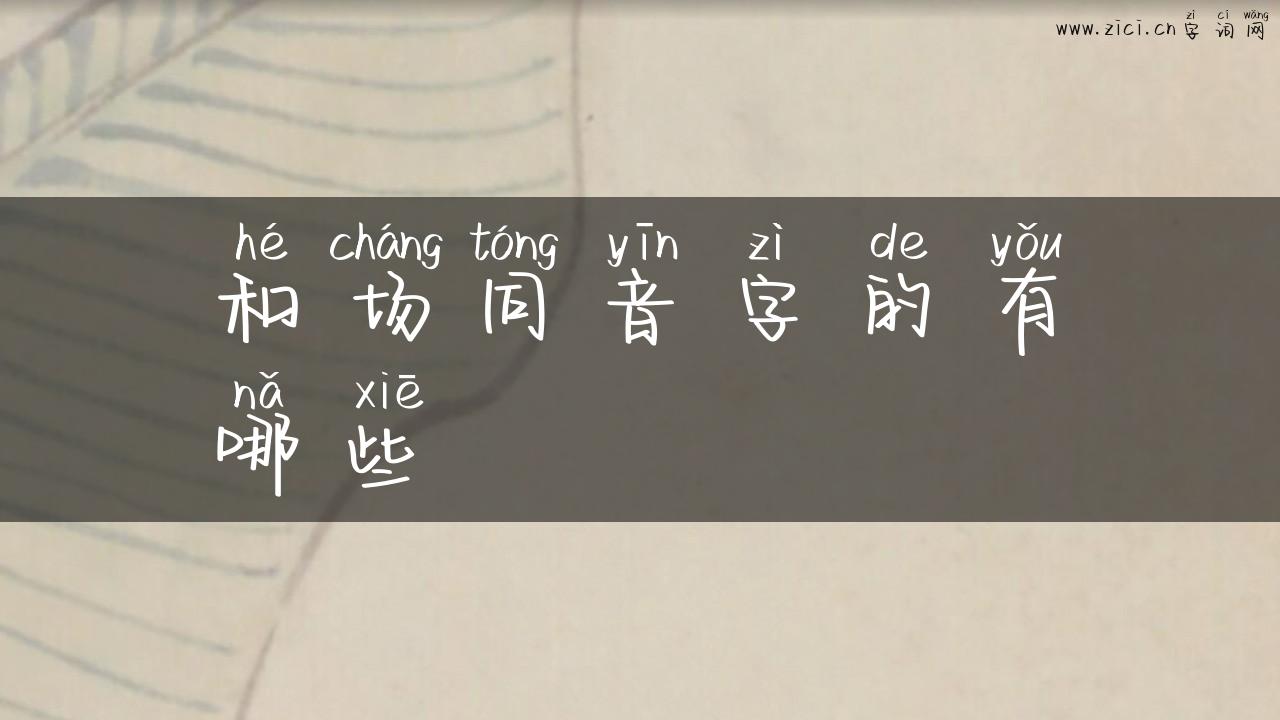 zì cí wǎng
www.zici.cn 字 词 网
hé cháng tóng yīn zì de yǒu
和 场 同 音 字 的 有
nǎ xiē
哪 些